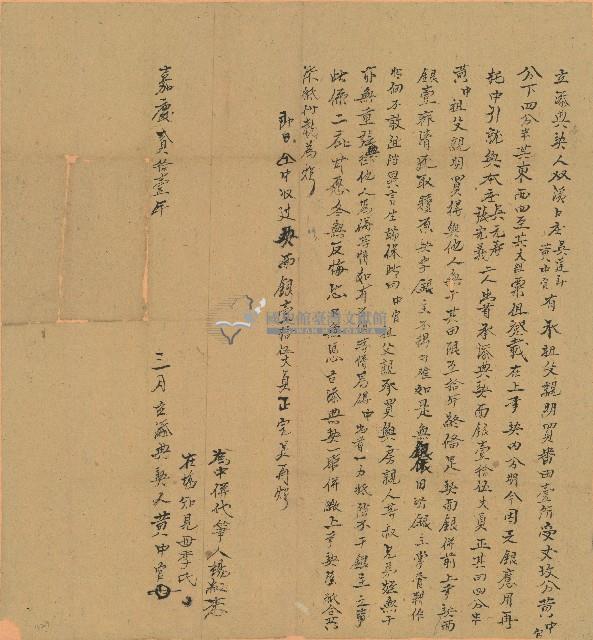 立添典契人双溪口庄吳廷 黃中官有承祖父親明買番田壹所受丈玖分黃中官
分下四分半其東西四至其大租粟租登載在上手契內分明今因乏銀應用再
托中引就與本庄吳元府 張光義二人出首承添典契面銀壹拾伍大員正其田四分半
黃中祖父親明買得與他人無干其田限至拾年終備足契面銀併前上手契面
銀壹齊清還取贖原契字銀主不得刁難如是無銀依旧付銀主掌管耕作
中官不敢阻當異言生端保此田中官祖父親承買與房親人等叔兄弟姪無干
亦無重張典他人為碍等情如有等情為碍中出首一力抵當不干銀主之事
此係二比甘愿各無反悔恐口無憑立添典契一帋併繳上手契字合共
帋付執為炤
即日仝中收过契面銀壹拾伍大員正完足再炤
為中併代筆人楊
在場知見母李氏
嘉慶貳拾壹年 三月立添典契人黃中官
國史館臺灣文獻館
TAIWAN HISTORICA